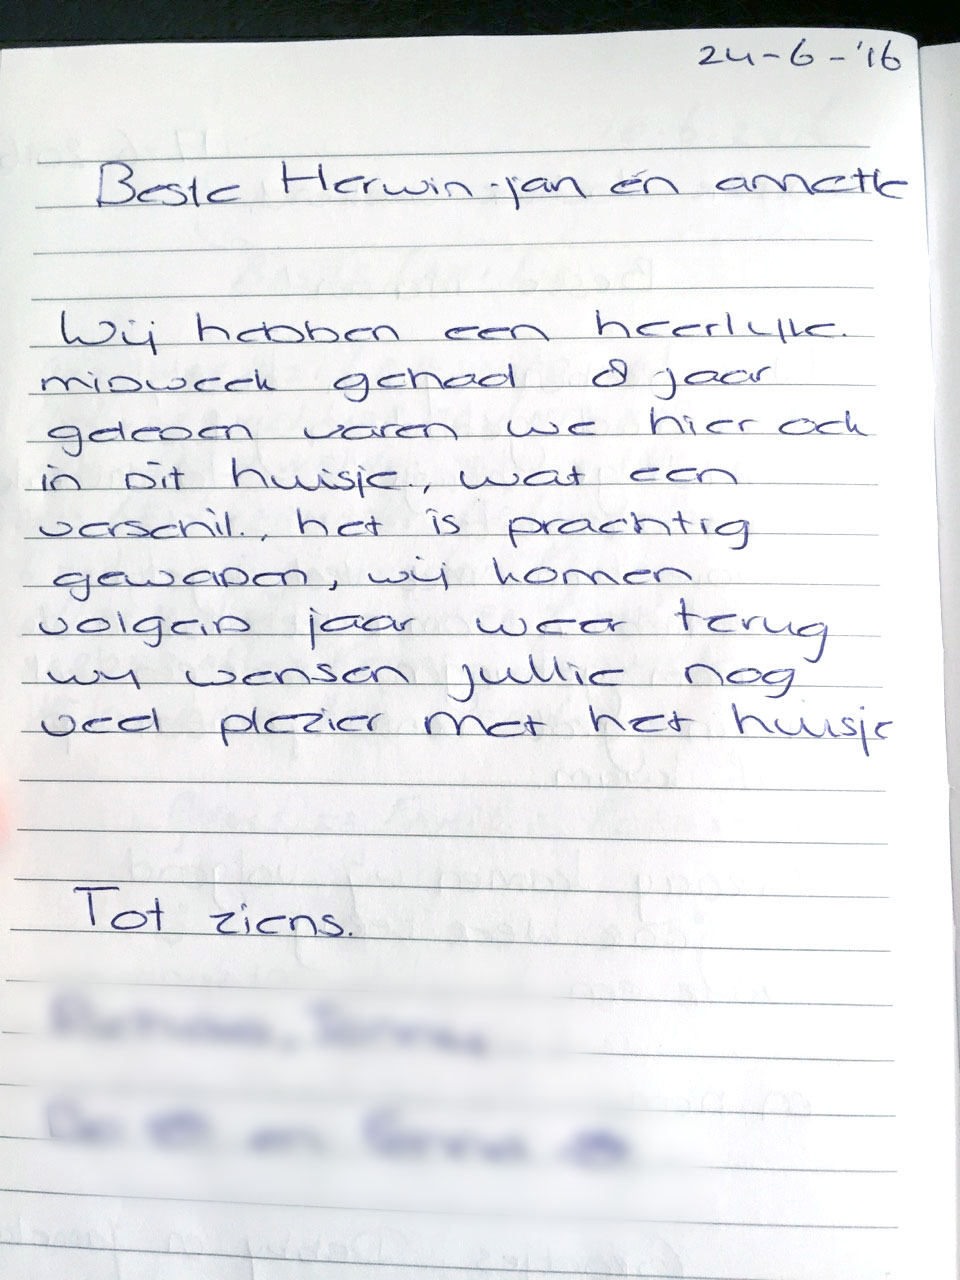 24-6-'16
Beste Herwin-jan en annette
Wij hebben een heerlijke.
midweek gehad 8 jaar
geleden waren we hier ook
in dit huisje., wat een
verschil., het is prachtig
gewaden, wij komen
volgend jaar weer terug
wij wensen jullie nog
veel plezier met het huisje
Tot ziens.